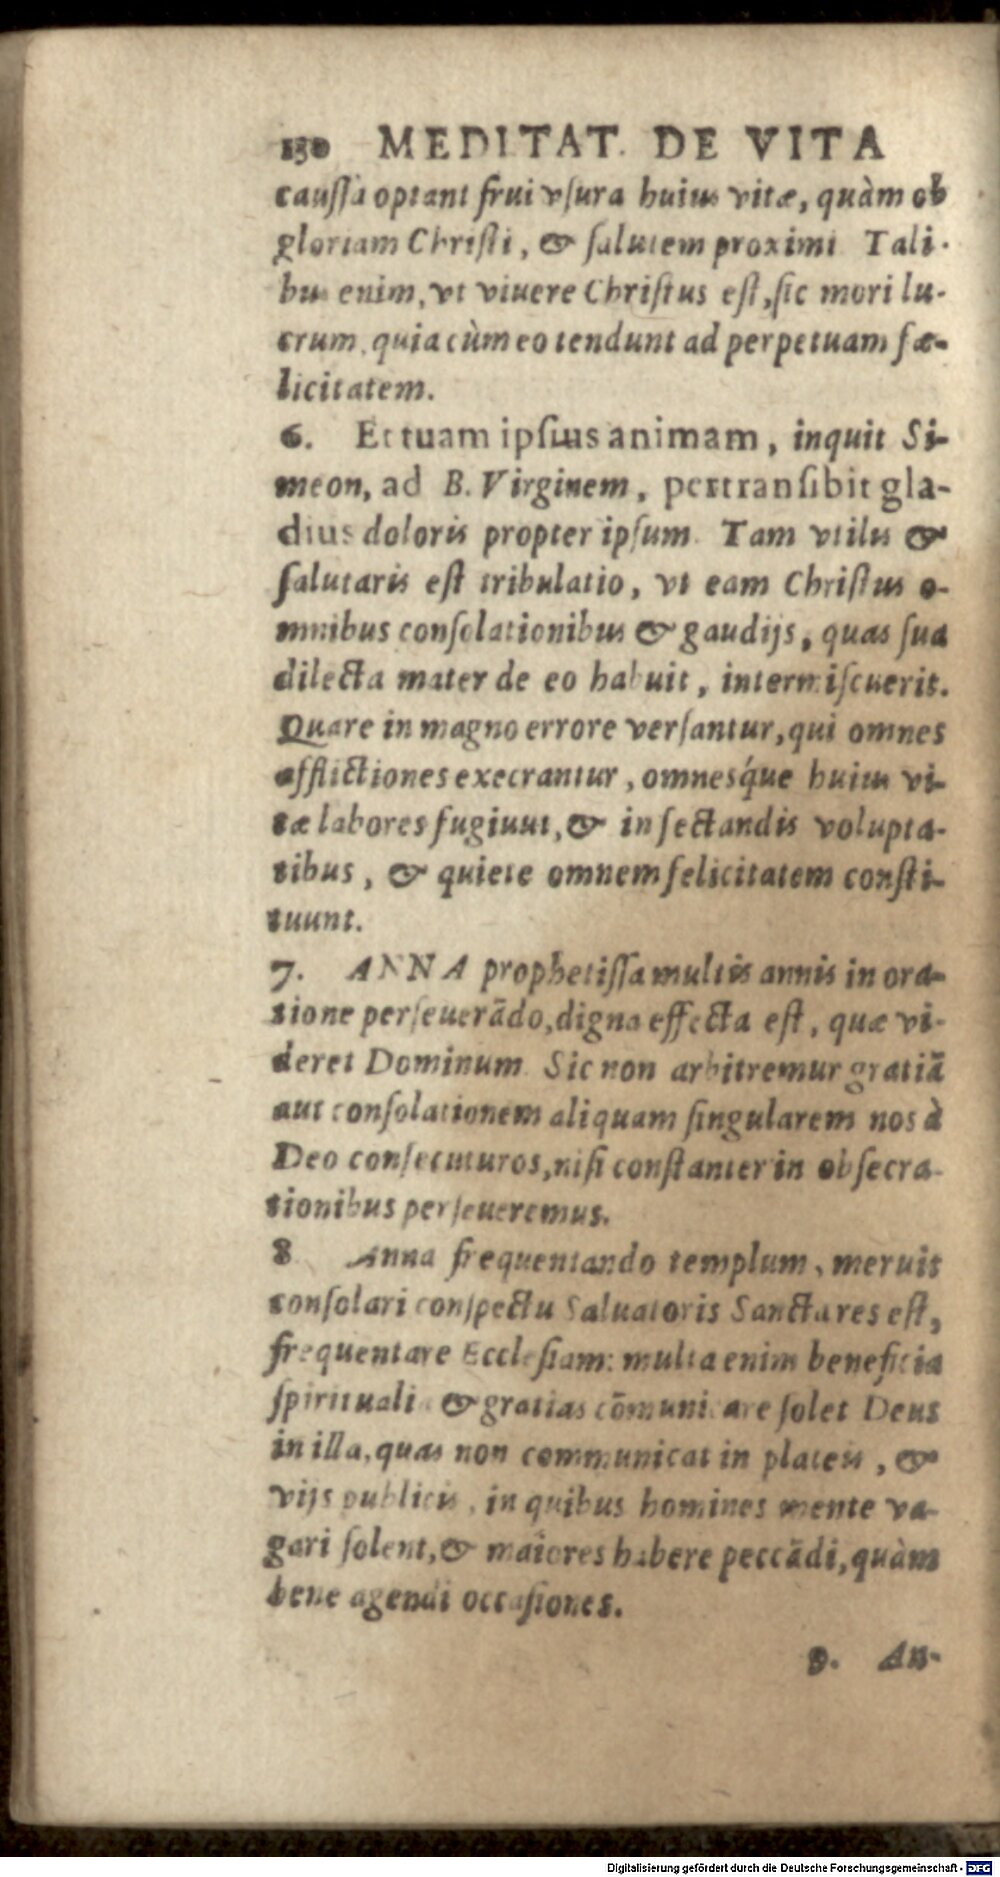 130 MEDITAT. DE VITA
caussa optant frui vsura huius vitæ, quàm ob
gloriam Christi, & salutem proximi Tali-
bus enim, vt viuere Christus est, sic mori lu-
crum, quia cùm eo tendunt ad perpetuam fœ-
licitatem.
6. Et tuam ipsius animam, inquit Si-
meon, ad B. Virginem, pertransibit gla-
dius doloris propter ipsum. Tam vtilis &
salutaris est tribulatio, vt eam Christus o-
mnibus consolationibus & gaudijs, quas sua
dilecta mater de eo habuit, intermiscuerit.
Quare in magno errore versantur, qui omnes
afflictiones execrantur, omnesq́ue huius vi-
tæ labores fugiunt, & in sectandis volupta-
tibus, & quiete omnem felicitatem consti-
tuunt.
7. ANNA prophetissa multis annis in ora-
tione perseuerãdo, digna effecta est, quæ vi-
deret Dominum Sic non arbitremur gratiã
aut consolationem aliquam singularem nos à
Deo consecuturos, nisi constanter in obsecra-
tionibus perseueremus.
8 Anna frequentando templum, meruit
consolari conspectu Saluatoris Sancta res est,
frequentare Ecclesiam: multa enim beneficia
spiritualia & gratias cõmunicare solet Deus
in illa, quas non communicat in plateis, &
vijs publicis, in quibus homines mente va-
gari solent, & maiores habere peccãdi, quàm
bene agendi occasiones.
9. An-
Digitalisierung gefördert durch die Deutsche Forschungsgemeinschaft - DFG